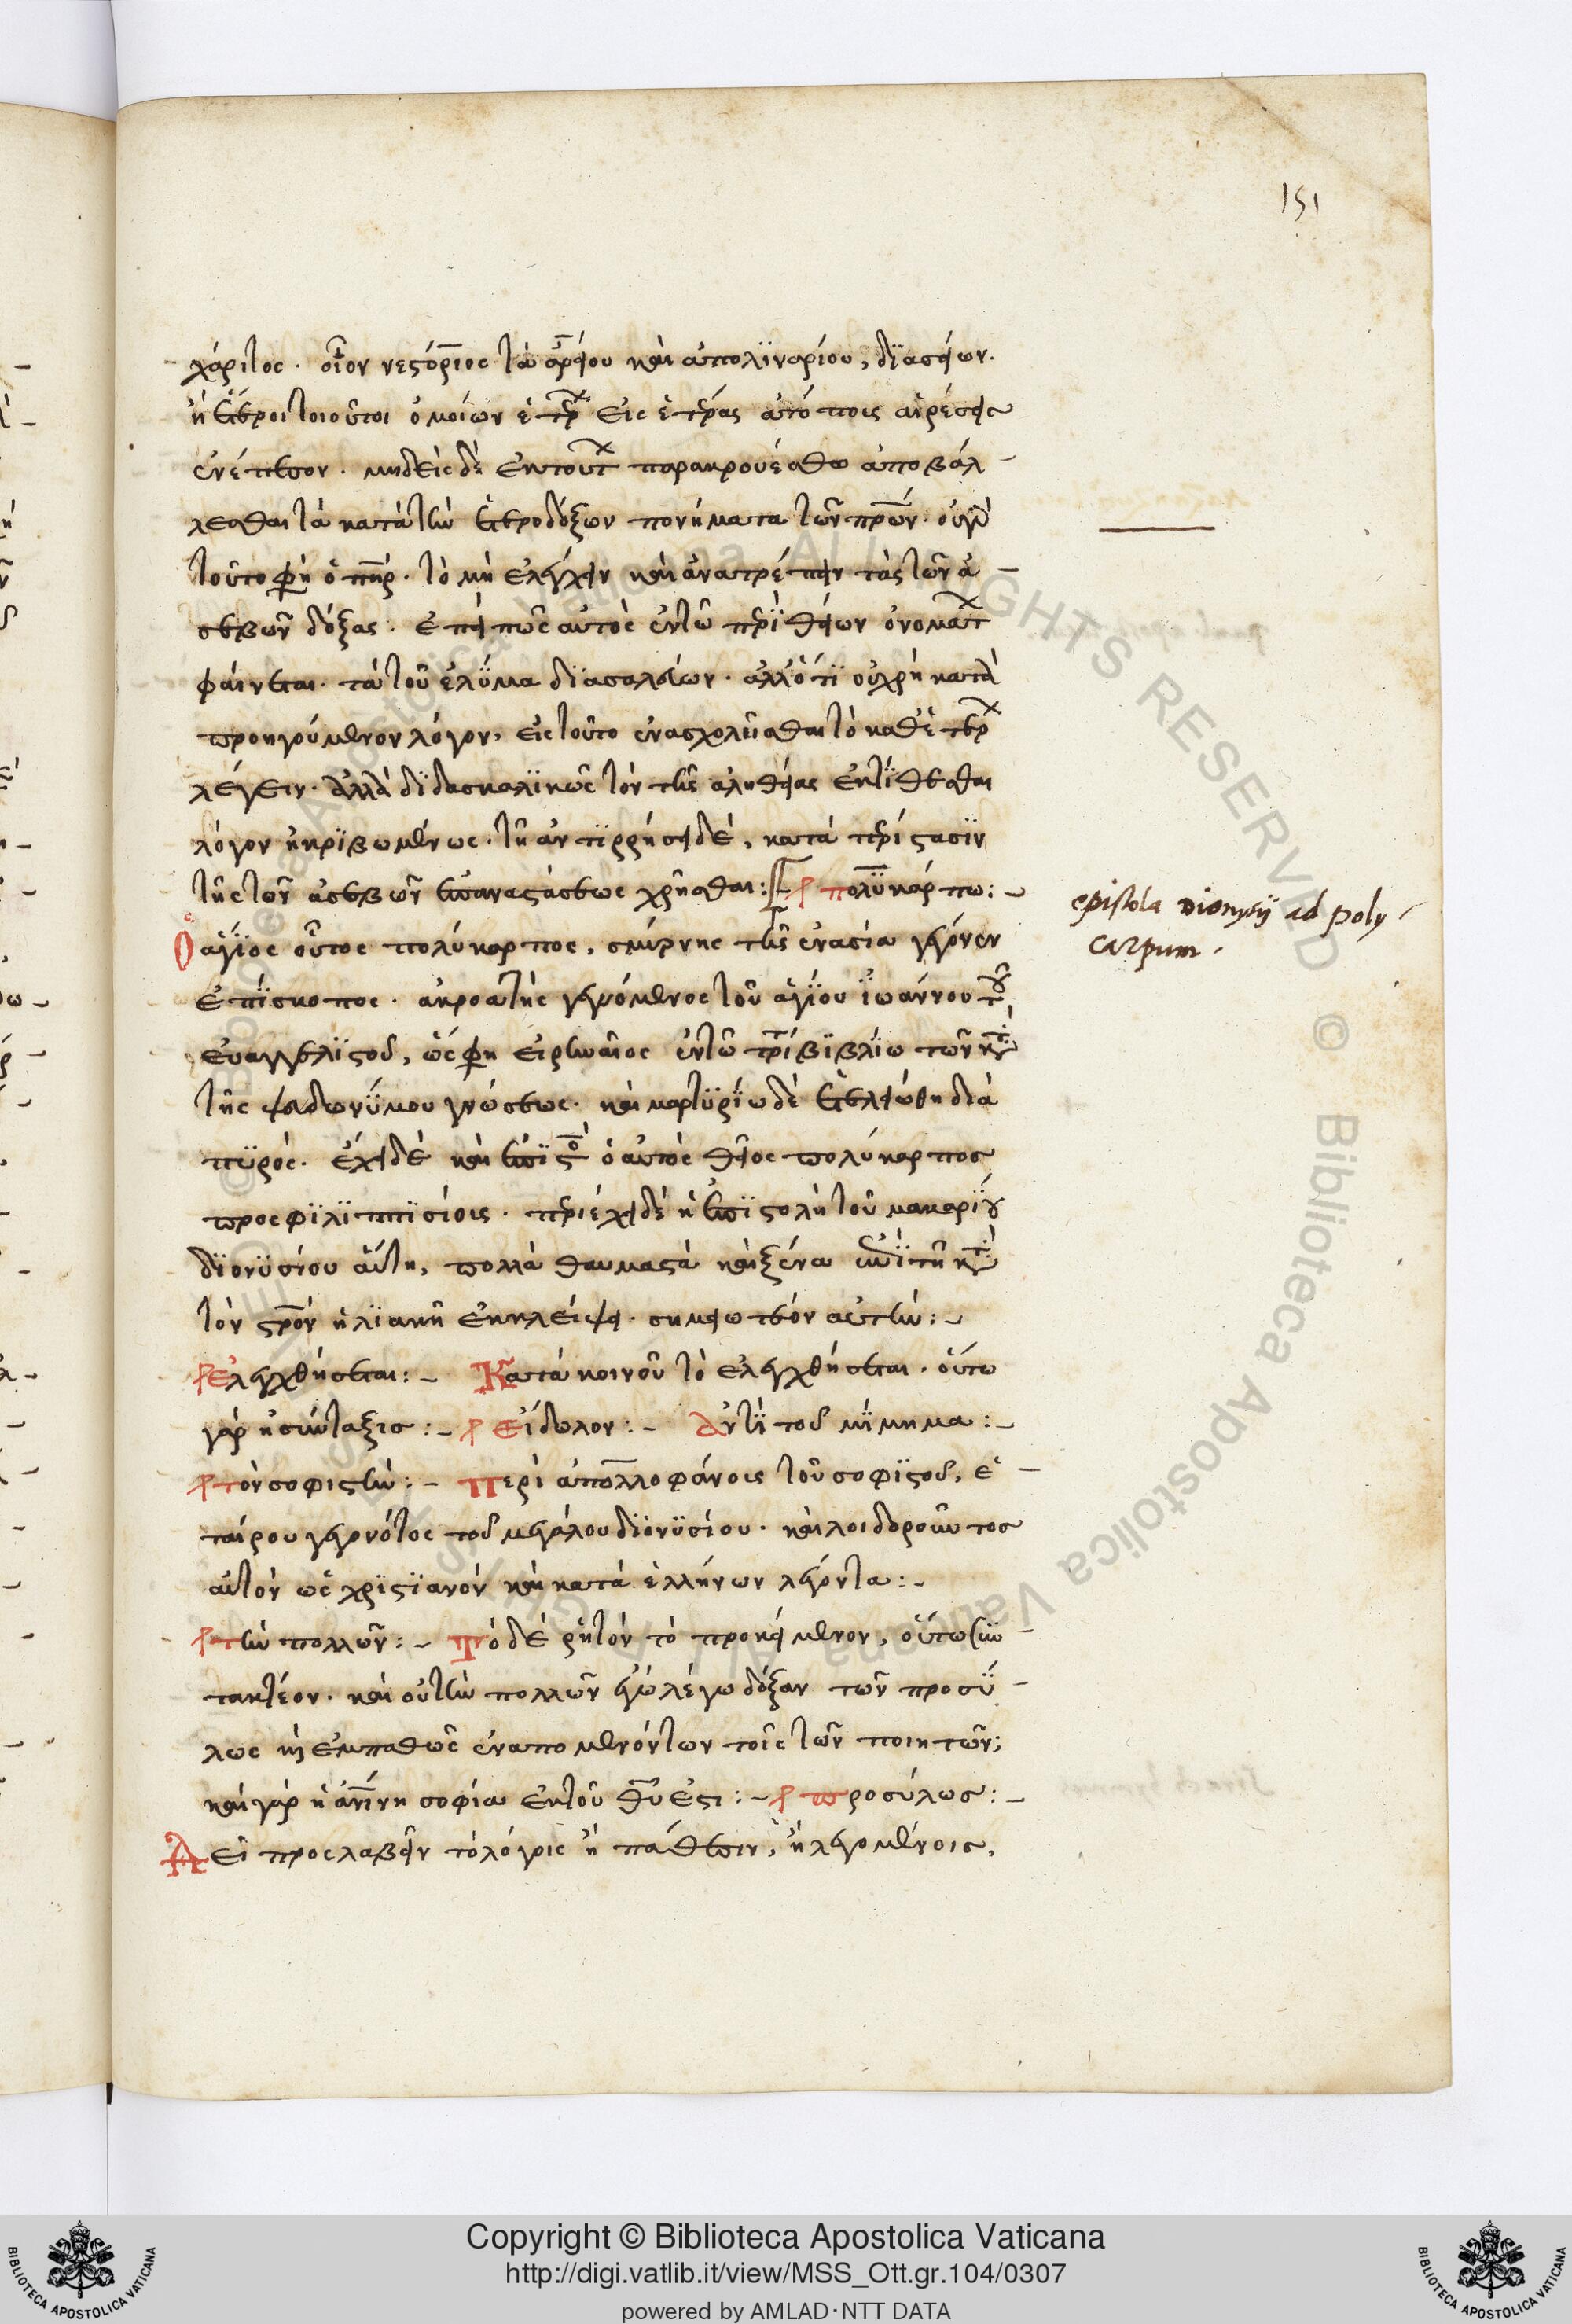 151
χάριτος· οἷον νεστόριος τὰ ἀρείου καὶ ἀπολϊναρίου, δϊασείων·
ἢ ἕτεροι τοιοῦτοι ὁμοίων ἑτέρων εἰς ἑτέρας ἀτόποις αἱρέσεις
ἐνέπεσον· μηδεὶς δὲ ἐν τούτοις παρακρουέσθω ἀποβάλ-
λεσθαι τὰ κατὰ τῶν ἑτεροδόξων πονήματα τῶν πρων· οὐ γὰρ
τοῦτο φη ὁ πηρ· τὸ μὴ ἐλέγχειν καὶ ἀνατρέπειν τὰς τῶν ἀ-
σεβῶν δόξας· ἐπεί πως αὐτὸς ἐν τῶ περὶ θείων ὀνομάτων
φαίνεται· τὰ τοῦ ἐλΰμα δϊασαλεύων· ἀλλ' ὅτϊ οὐ χρὴ κατὰ
προηγούμενον λόγον, εἰς τοῦτο ἐνασχολεῖσθαι τὸ καθ' ἑτέρων
λέγειν· ἀλλὰ δϊδασκαλϊκῶς τὸν τῆς ἀληθείας ἐκτίθεσθαι
λόγον ἠκρϊβωμένως· τῆ ἀντϊρρήσει δὲ, κατὰ περίστασϊν
τῆς τῶν ἀσεβῶν ἐπαναστάσεως χρῆσθαι:- πολϋκάρπω:-
Ὁ ἅγϊος οὗτος πολύκαρπος, σμύρνης τῆς ἐν ἀσία γέγονεν
ἐπίσκοπος· ἀκροατὴς γενόμενος τοῦ ἁγΐου ϊωάννου τοῦ
εὐαγγελϊστοῦ, ὥς φη εἰρηναῖος ἐν τῶ τρί βϊβλΐω τῶν κατὰ
τῆς ψευδωνΰμου γνώσεως· καὶ μαρτϋρΐω δὲ ἐτελειώθη διὰ
πϋρός· ἔχει δὲ καὶ ἐπϊστο ὁ αὐτὸς θεῖος πολύκαρπος
προς φϊλϊππϊσίοις· περιέχει δὲ ἡ ἐπϊστολὴ τοῦ μακαρΐου
δϊονϋσίου αὕτη, πολλὰ θαυμαστὰ καὶ ξένα ἐπὶ τῆ κατὰ
τὸν στρον ἡλϊακῆ ἐκκλείψει· σημειωτέον αὐτήν:-
ἐλεγχθήσεται:- Κατὰ κοινοῦ τὸ ἐλεγχθήσεται· οὕτω
γὰρ ἡ σύνταξις:- εἴδωλον:- ἀντὶ τοῦ μΐμημα:-
τὸν σοφιστὴν:- Περὶ ἀπολλοφάνοις τοῦ σοφϊστοῦ, ἑ-
ταίρου γεγονότος τοῦ μεγάλου δϊονϋσίου· καὶ λοιδοροῦντος
αὐτὸν ὡς χρϊστϊανὸν καὶ κατὰ ἑλλήνων λέγοντα:-
τὴν πολλῶν:- Τὸ δὲ ῥητὸν τὸ προκείμενον, οὕτω συν-
τακτέον· καὶ οὐ τὴν πολλῶν ἐγὼ λέγω δόξαν τῶν προσΰ-
λως καὶ ἐμπαθῶς ἐναπομενόντων τοῖς τῶν ποιητῶν;
καὶ γὰρ ἡ ἀνίνη σοφία ἐκ τοῦ θυ ἐστι:- προσύλως:-
Δεῖ προσλαβεῖν τὸ λόγοις ἢ πάθεσιν, ἢ λεγομένοις,
epistola Dionysij ad poly-
carpum.
Copyright © Biblioteca Apostolica Vaticana
http://digi.vatlib.it/view/MSS_Ott.gr.104/0307
powered by AMLAD·NTT DATA
BIBLIOTECA APOSTOLICA VATICANA
BIBLIOTECA APOSTOLICA VATICANA